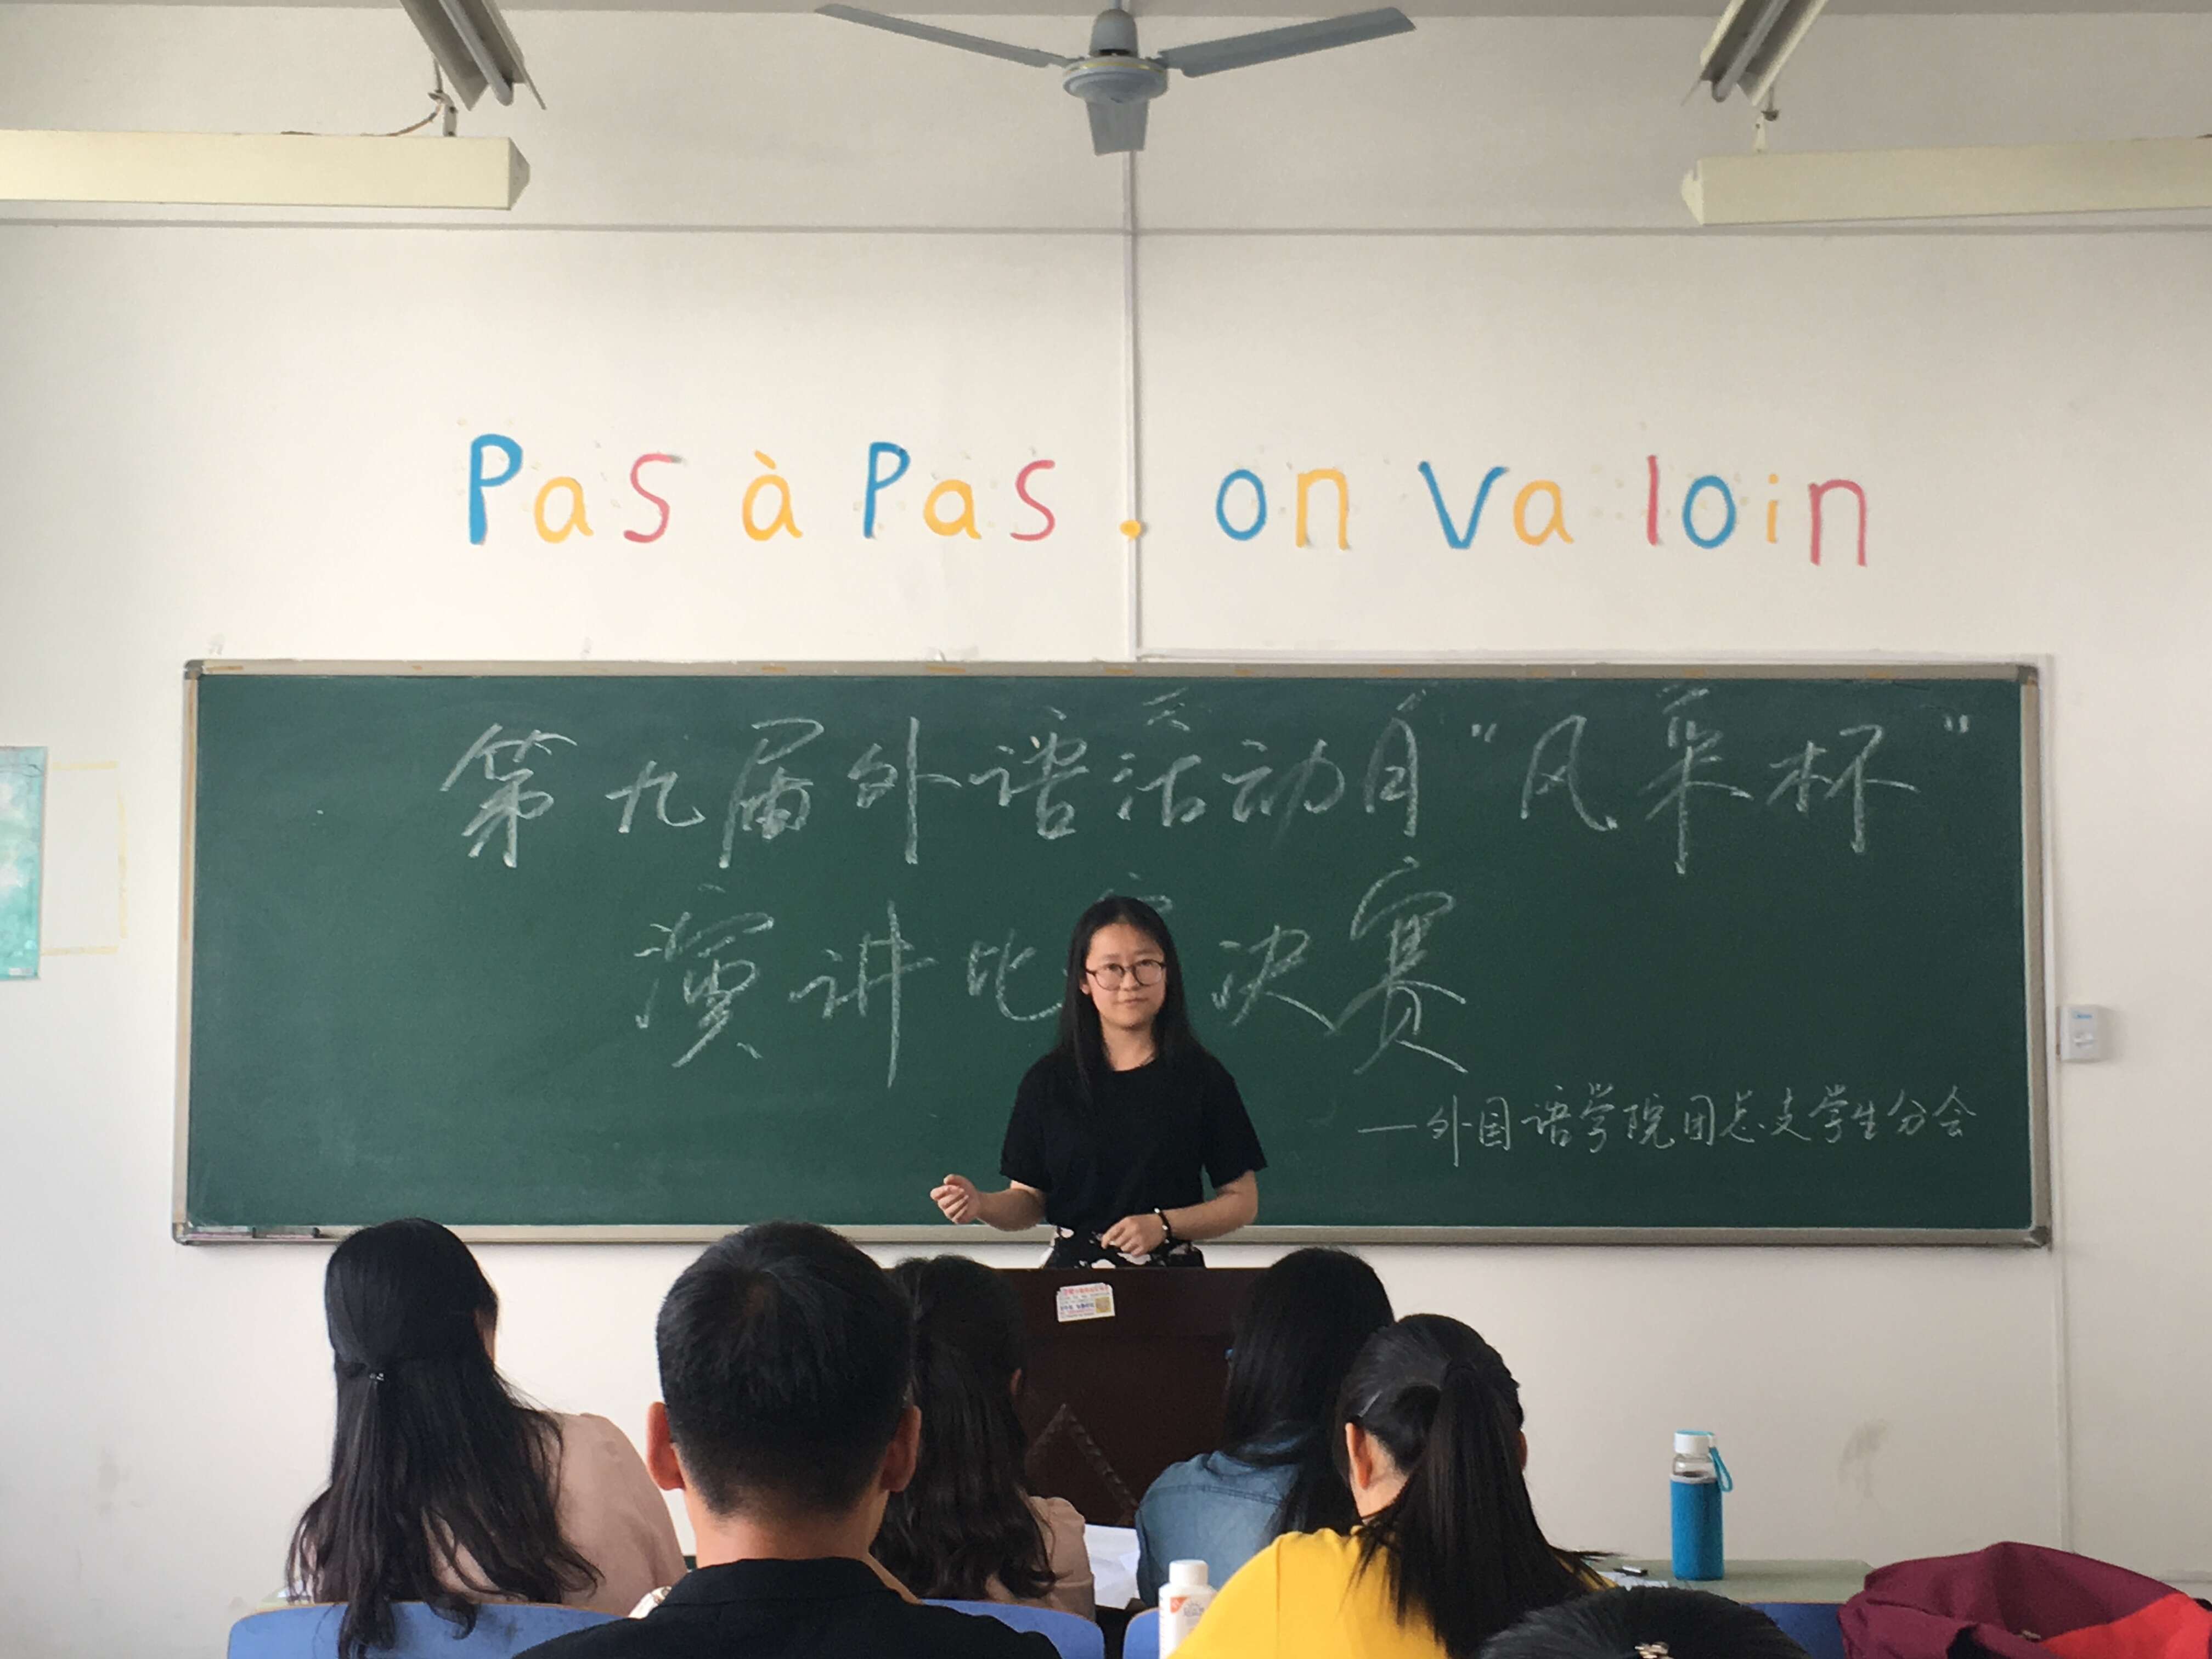 Pas à Pas . on va loin
第九届外语活动月“风采杯”
演讲比 决赛
—外国语学院团总支学生分会